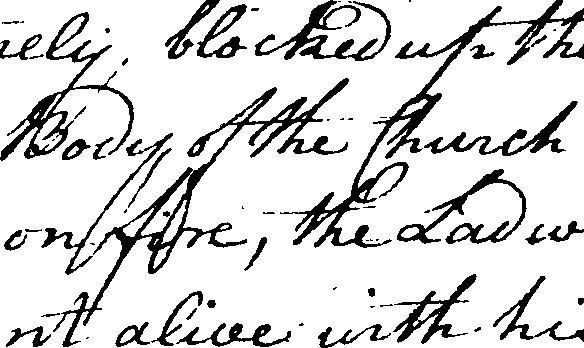 nely, blocked up the
Body of the Church
on fire, the Lad w
nt alive with hi